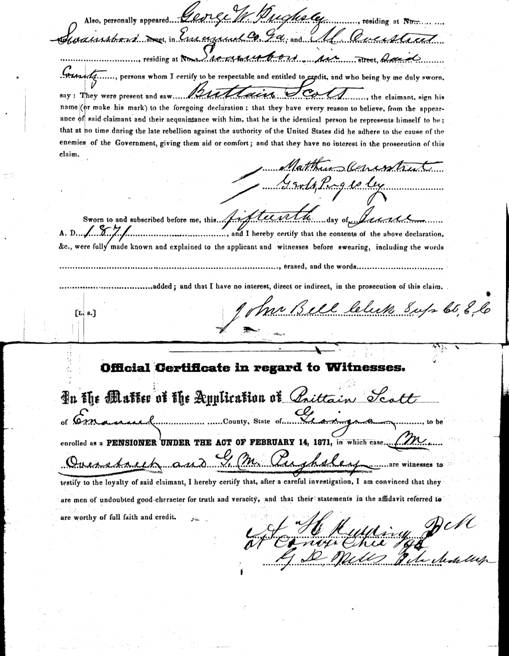 Also, personally appeared George W Pughsley, residing at No.
Swainsboro street, in Emanuel Co. Ga, and M Overstreet
, residing at No. Swainsboro in street, Said
County, persons whom I certify to be respectable and entitled to credit, and who being by me duly sworn,
say: They were present and saw Brittain Scott, the claimant, sign his
name (or make his mark) to the foregoing declaration; that they have every reason to believe, from the appear-
ance of said claimant and their acquaintance with him, that he is the identical person he represents himself to be;
that at no time during the late rebellion against the authority of the United States did he adhere to the cause of the
enemies of the Government, giving them aid or comfort; and that they have no interest in the prosecution of this
claim.
Matthew Overstreet
Geo W Pughsley
Sworn to and subscribed before me, this fifteenth day of June
A. D. 1871, and I hereby certify that the contents of the above declaration,
&c., were fully made known and explained to the applicant and witnesses before swearing, including the words
, erased, and the words
added; and that I have no interest, direct or indirect, in the prosecution of this claim.
[L. S.] John Bell Clerk Sup Ct, E, C
Official Certificate in regard to Witnesses.
In the Matter of the Application of Brittain Scott
of Emanuel County, State of Georgia to be
enrolled as a PENSIONER UNDER THE ACT OF FEBRUARY 14, 1871, in which case M
Overstreet and G. M. Pughsley are witnesses to
testify to the loyalty of said claimant, I hereby certify that, after a careful investigation, I am convinced that they
are men of undoubted good character for truth and veracity, and that their statements in the affidavit referred to
are worthy of full faith and credit.
P M
at